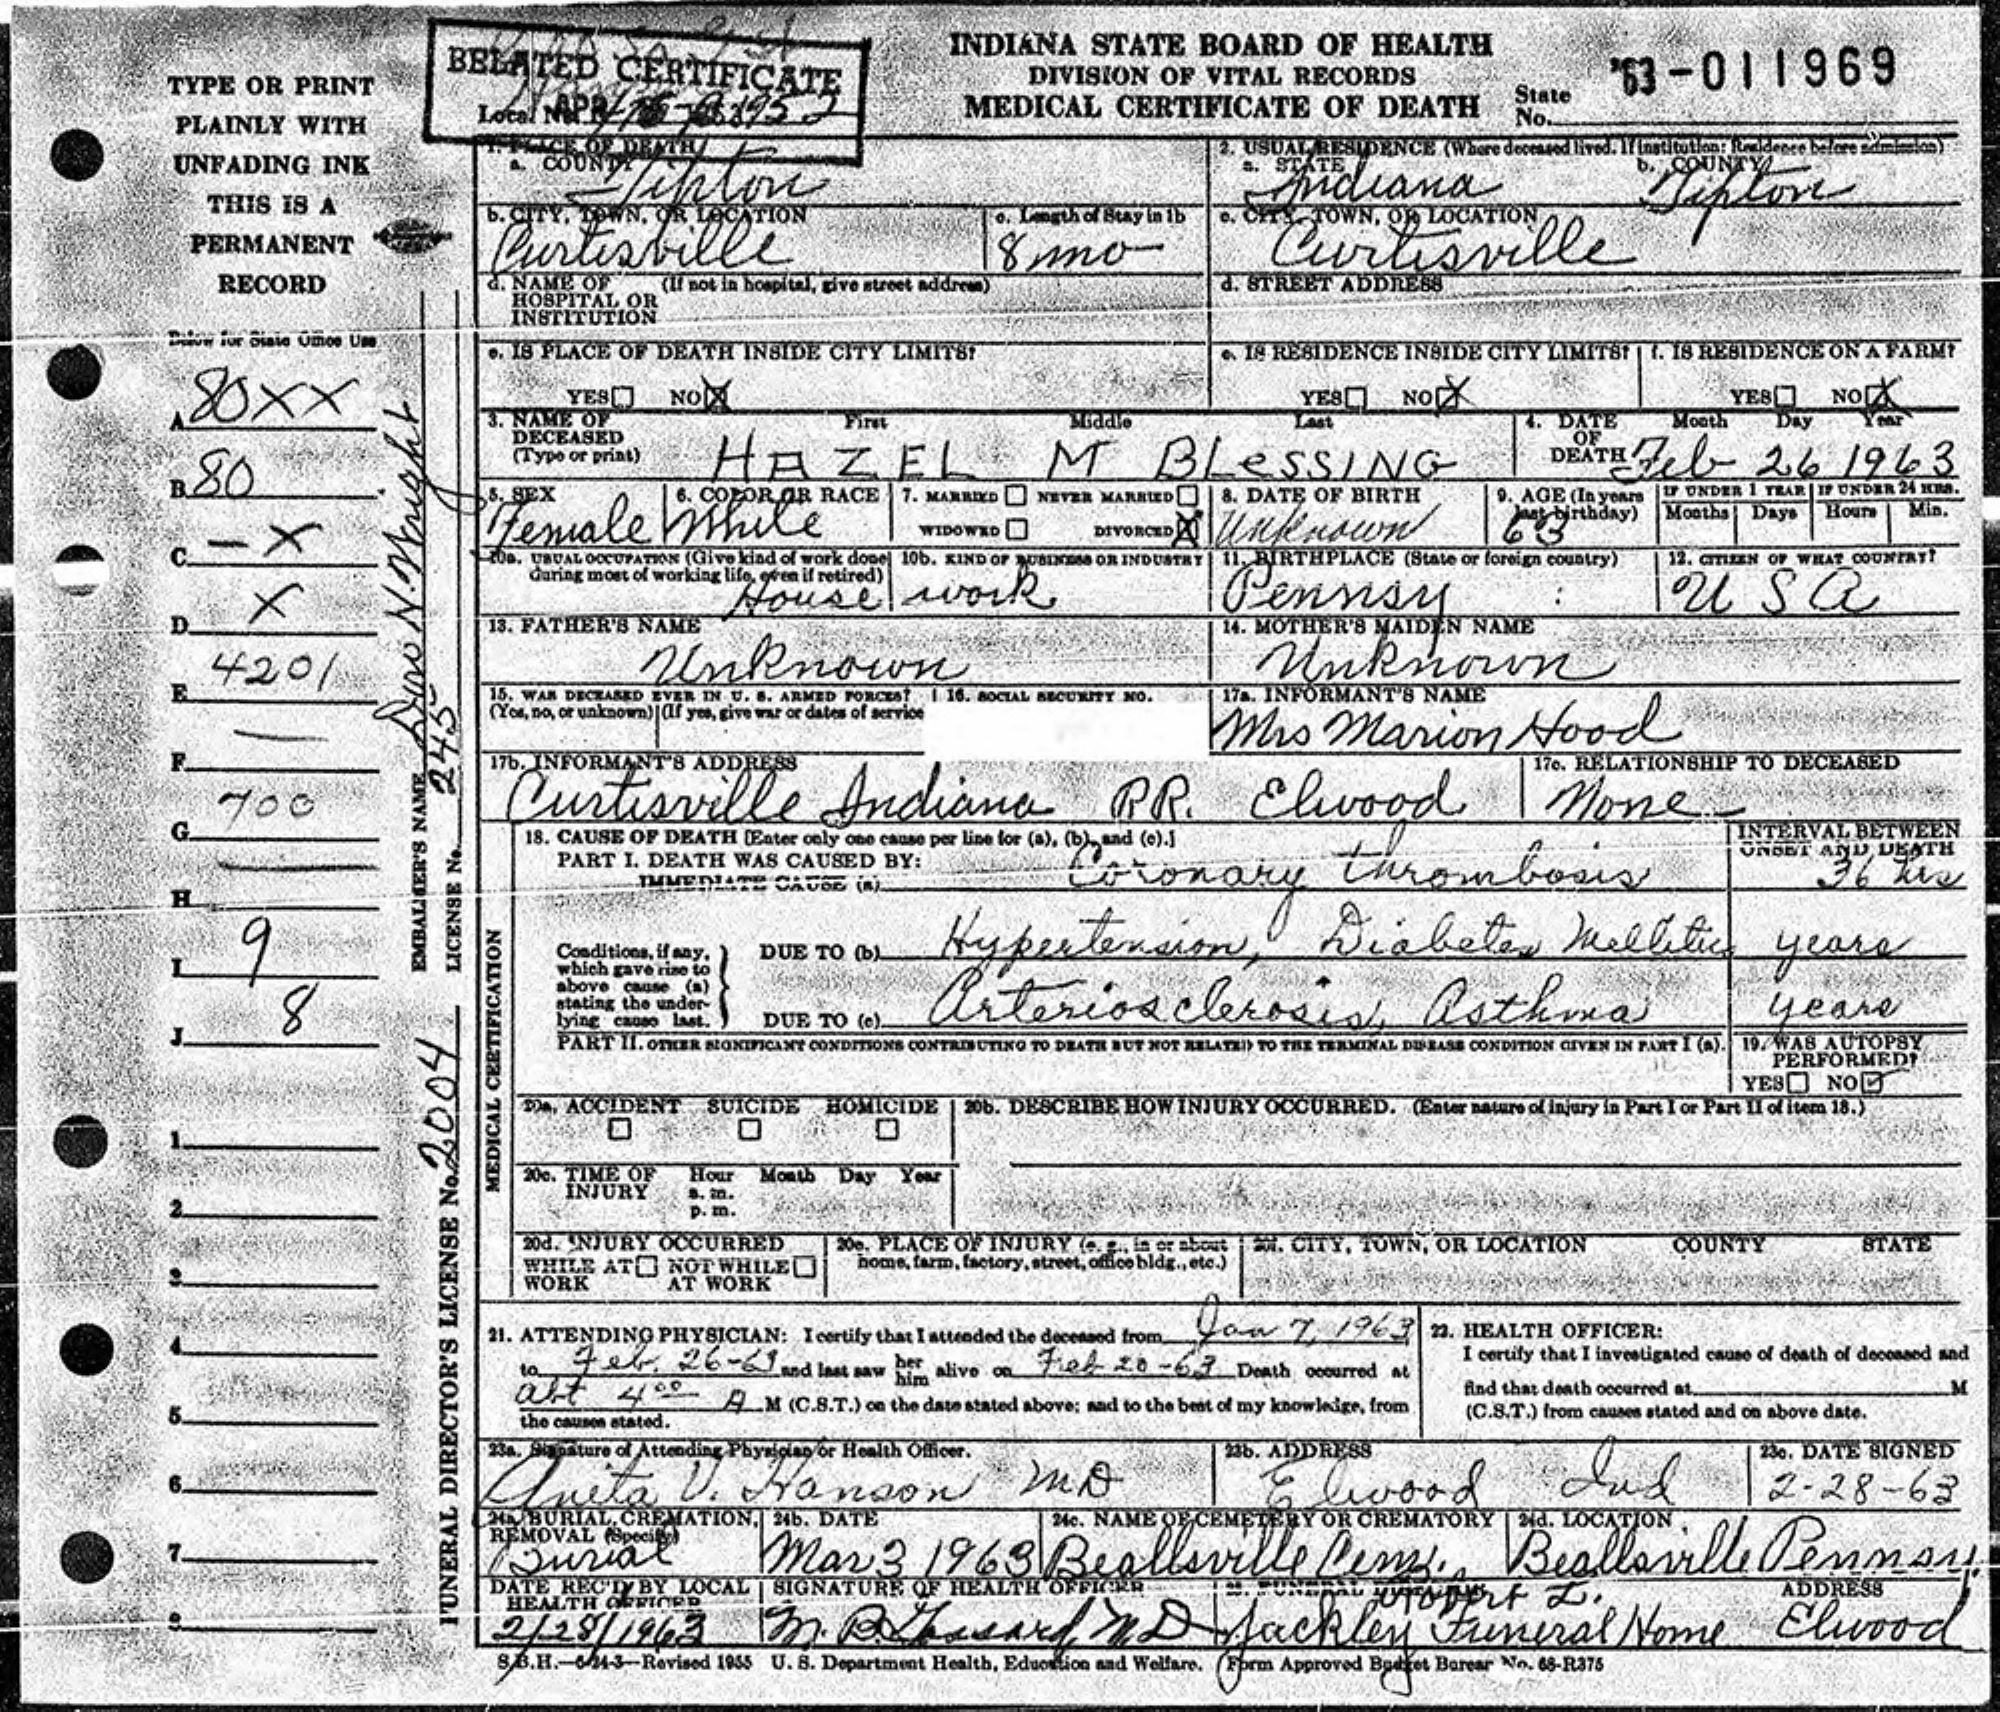 BELATED CERTIFICATE
Local No.
INDIANA STATE BOARD OF HEALTH
DIVISION OF VITAL RECORDS
MEDICAL CERTIFICATE OF DEATH
State No. 63-011969
TYPE OR PRINT
PLAINLY WITH
UNFADING INK
THIS IS A
PERMANENT
RECORD
Below for State Office Use
A 80XX
B 80
C – X
D X
E 4201
F —
G 700
H —
I 9
J 8
1
2
3
4
5
6
7
8
EMBALMER'S NAME N. Wright
LICENSE No. 245
FUNERAL DIRECTOR'S LICENSE No. 2004
1. PLACE OF DEATH
a. COUNTY Tipton
2. USUAL RESIDENCE (Where deceased lived. If institution: Residence before admission)
a. STATE Indiana b. COUNTY Tipton
b. CITY, TOWN, OR LOCATION Curtisville
c. Length of Stay in 1b 8 mo
c. CITY, TOWN, OR LOCATION Curtisville
d. NAME OF HOSPITAL OR INSTITUTION (If not in hospital, give street address)
d. STREET ADDRESS
e. IS PLACE OF DEATH INSIDE CITY LIMITS?
YES☐ NO☒
e. IS RESIDENCE INSIDE CITY LIMITS?
YES☐ NO☒
f. IS RESIDENCE ON A FARM?
YES☐ NO☒
3. NAME OF DECEASED (Type or print)
First Middle Last
HAZEL M BLeSSING
4. DATE OF DEATH Month Day Year
Feb 26 1963
5. SEX Female
6. COLOR OR RACE White
7. MARRIED ☐ NEVER MARRIED ☐
WIDOWED ☐ DIVORCED ☒
8. DATE OF BIRTH Unknown
9. AGE (In years last birthday) 63
IF UNDER 1 YEAR Months Days
IF UNDER 24 HRS. Hours Min.
10a. USUAL OCCUPATION (Give kind of work done during most of working life, even if retired) House
10b. KIND OF BUSINESS OR INDUSTRY work
11. BIRTHPLACE (State or foreign country) Pennsy
12. CITIZEN OF WHAT COUNTRY? U S A
13. FATHER'S NAME Unknown
14. MOTHER'S MAIDEN NAME Unknown
15. WAS DECEASED EVER IN U. S. ARMED FORCES?
(Yes, no, or unknown) (If yes, give war or dates of service
16. SOCIAL SECURITY NO.
17a. INFORMANT'S NAME Mrs Marion Hood
17b. INFORMANT'S ADDRESS Curtisville Indiana RR. Elwood
17c. RELATIONSHIP TO DECEASED None
MEDICAL CERTIFICATION
18. CAUSE OF DEATH [Enter only one cause per line for (a), (b), and (c).]
INTERVAL BETWEEN ONSET AND DEATH
PART I. DEATH WAS CAUSED BY:
IMMEDIATE CAUSE (a) Coronary thrombosis 36 hrs
Conditions, if any, which gave rise to above cause (a) stating the underlying cause last.
DUE TO (b) Hypertension, Diabetes Mellitus years
DUE TO (c) Arteriosclerosis, Asthma years
PART II. OTHER SIGNIFICANT CONDITIONS CONTRIBUTING TO DEATH BUT NOT RELATED TO THE TERMINAL DISEASE CONDITION GIVEN IN PART I (a).
19. WAS AUTOPSY PERFORMED?
YES☐ NO☑
20a. ACCIDENT SUICIDE HOMICIDE
☐ ☐ ☐
20b. DESCRIBE HOW INJURY OCCURRED. (Enter nature of injury in Part I or Part II of item 18.)
20c. TIME OF INJURY Hour Month Day Year
a. m.
p. m.
20d. INJURY OCCURRED
WHILE AT WORK ☐ NOT WHILE AT WORK ☐
20e. PLACE OF INJURY (e. g., in or about home, farm, factory, street, office bldg., etc.)
20f. CITY, TOWN, OR LOCATION COUNTY STATE
21. ATTENDING PHYSICIAN: I certify that I attended the deceased from Jan 7, 1963
to Feb. 26-63 and last saw her him alive on Feb 20-63 Death occurred at
abt 4 00 A M (C.S.T.) on the date stated above; and to the best of my knowledge, from
the causes stated.
22. HEALTH OFFICER:
I certify that I investigated cause of death of deceased and
find that death occurred at M
(C.S.T.) from causes stated and on above date.
23a. Signature of Attending Physician or Health Officer.
Anita V. Hanson MD
23b. ADDRESS Elwood Ind
23c. DATE SIGNED 2-28-63
24a. BURIAL, CREMATION, REMOVAL (Specify) Burial
24b. DATE Mar 3 1963
24c. NAME OF CEMETERY OR CREMATORY Beallsville Cem.
24d. LOCATION Beallsville Pennsy
DATE REC'D BY LOCAL HEALTH OFFICER 2/28/1963
SIGNATURE OF HEALTH OFFICER M. B. MD
25. FUNERAL ADDRESS
Robert L.
Jackley Funeral Home Elwood
S.B.H.—6-24-3—Revised 1955 U. S. Department Health, Education and Welfare. Form Approved Budget Bureau No. 68-R375